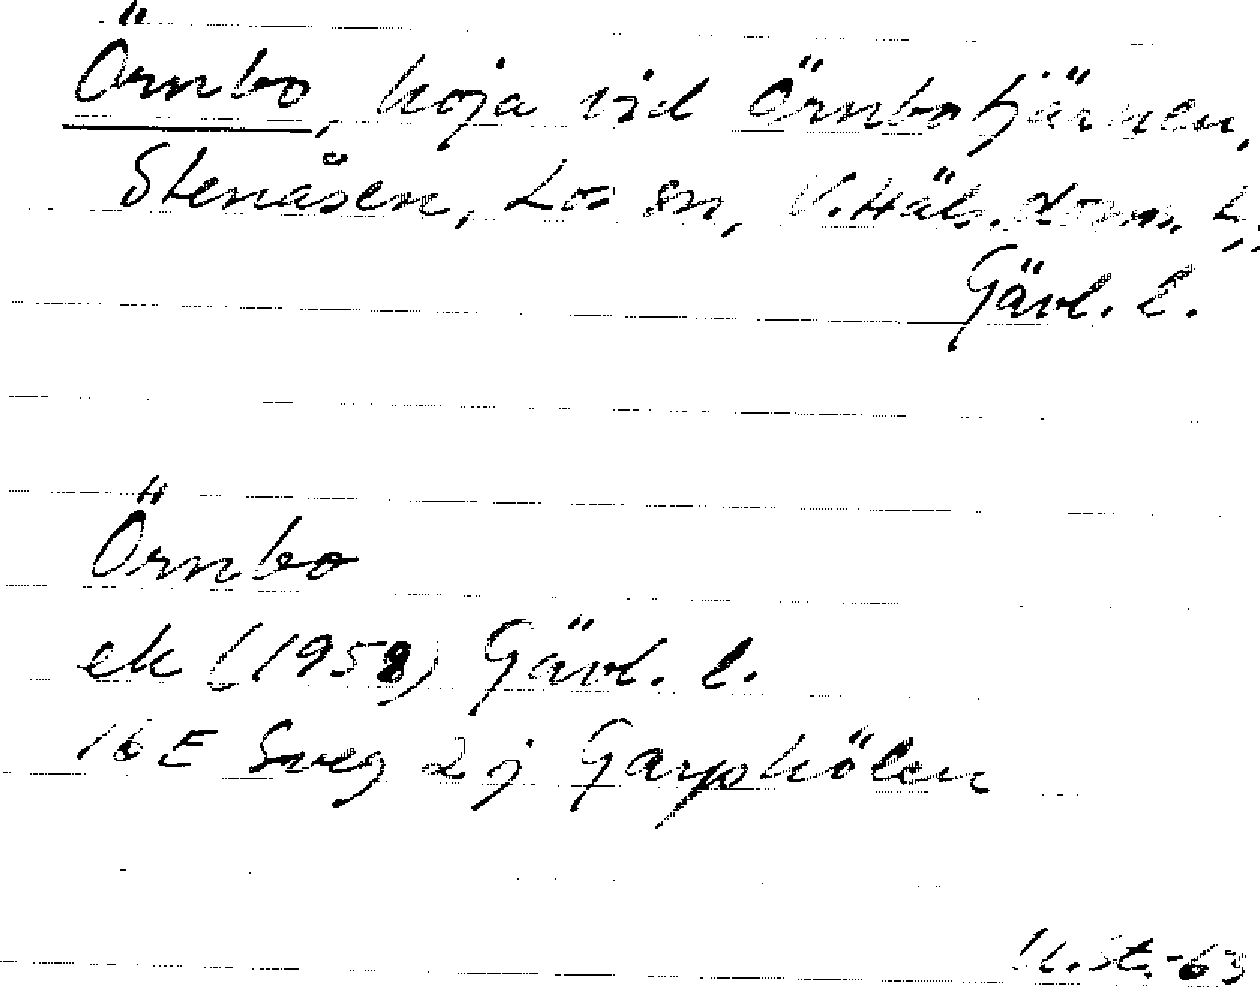 Örnbo, koja vid Örnbotjärnen,
Stenåsen, Los sn, V. Häls. doms.
Gävl. l.
Örnbo
ek (1958) Gävl. l.
16E Sveg 2j Garphölen
St.-63